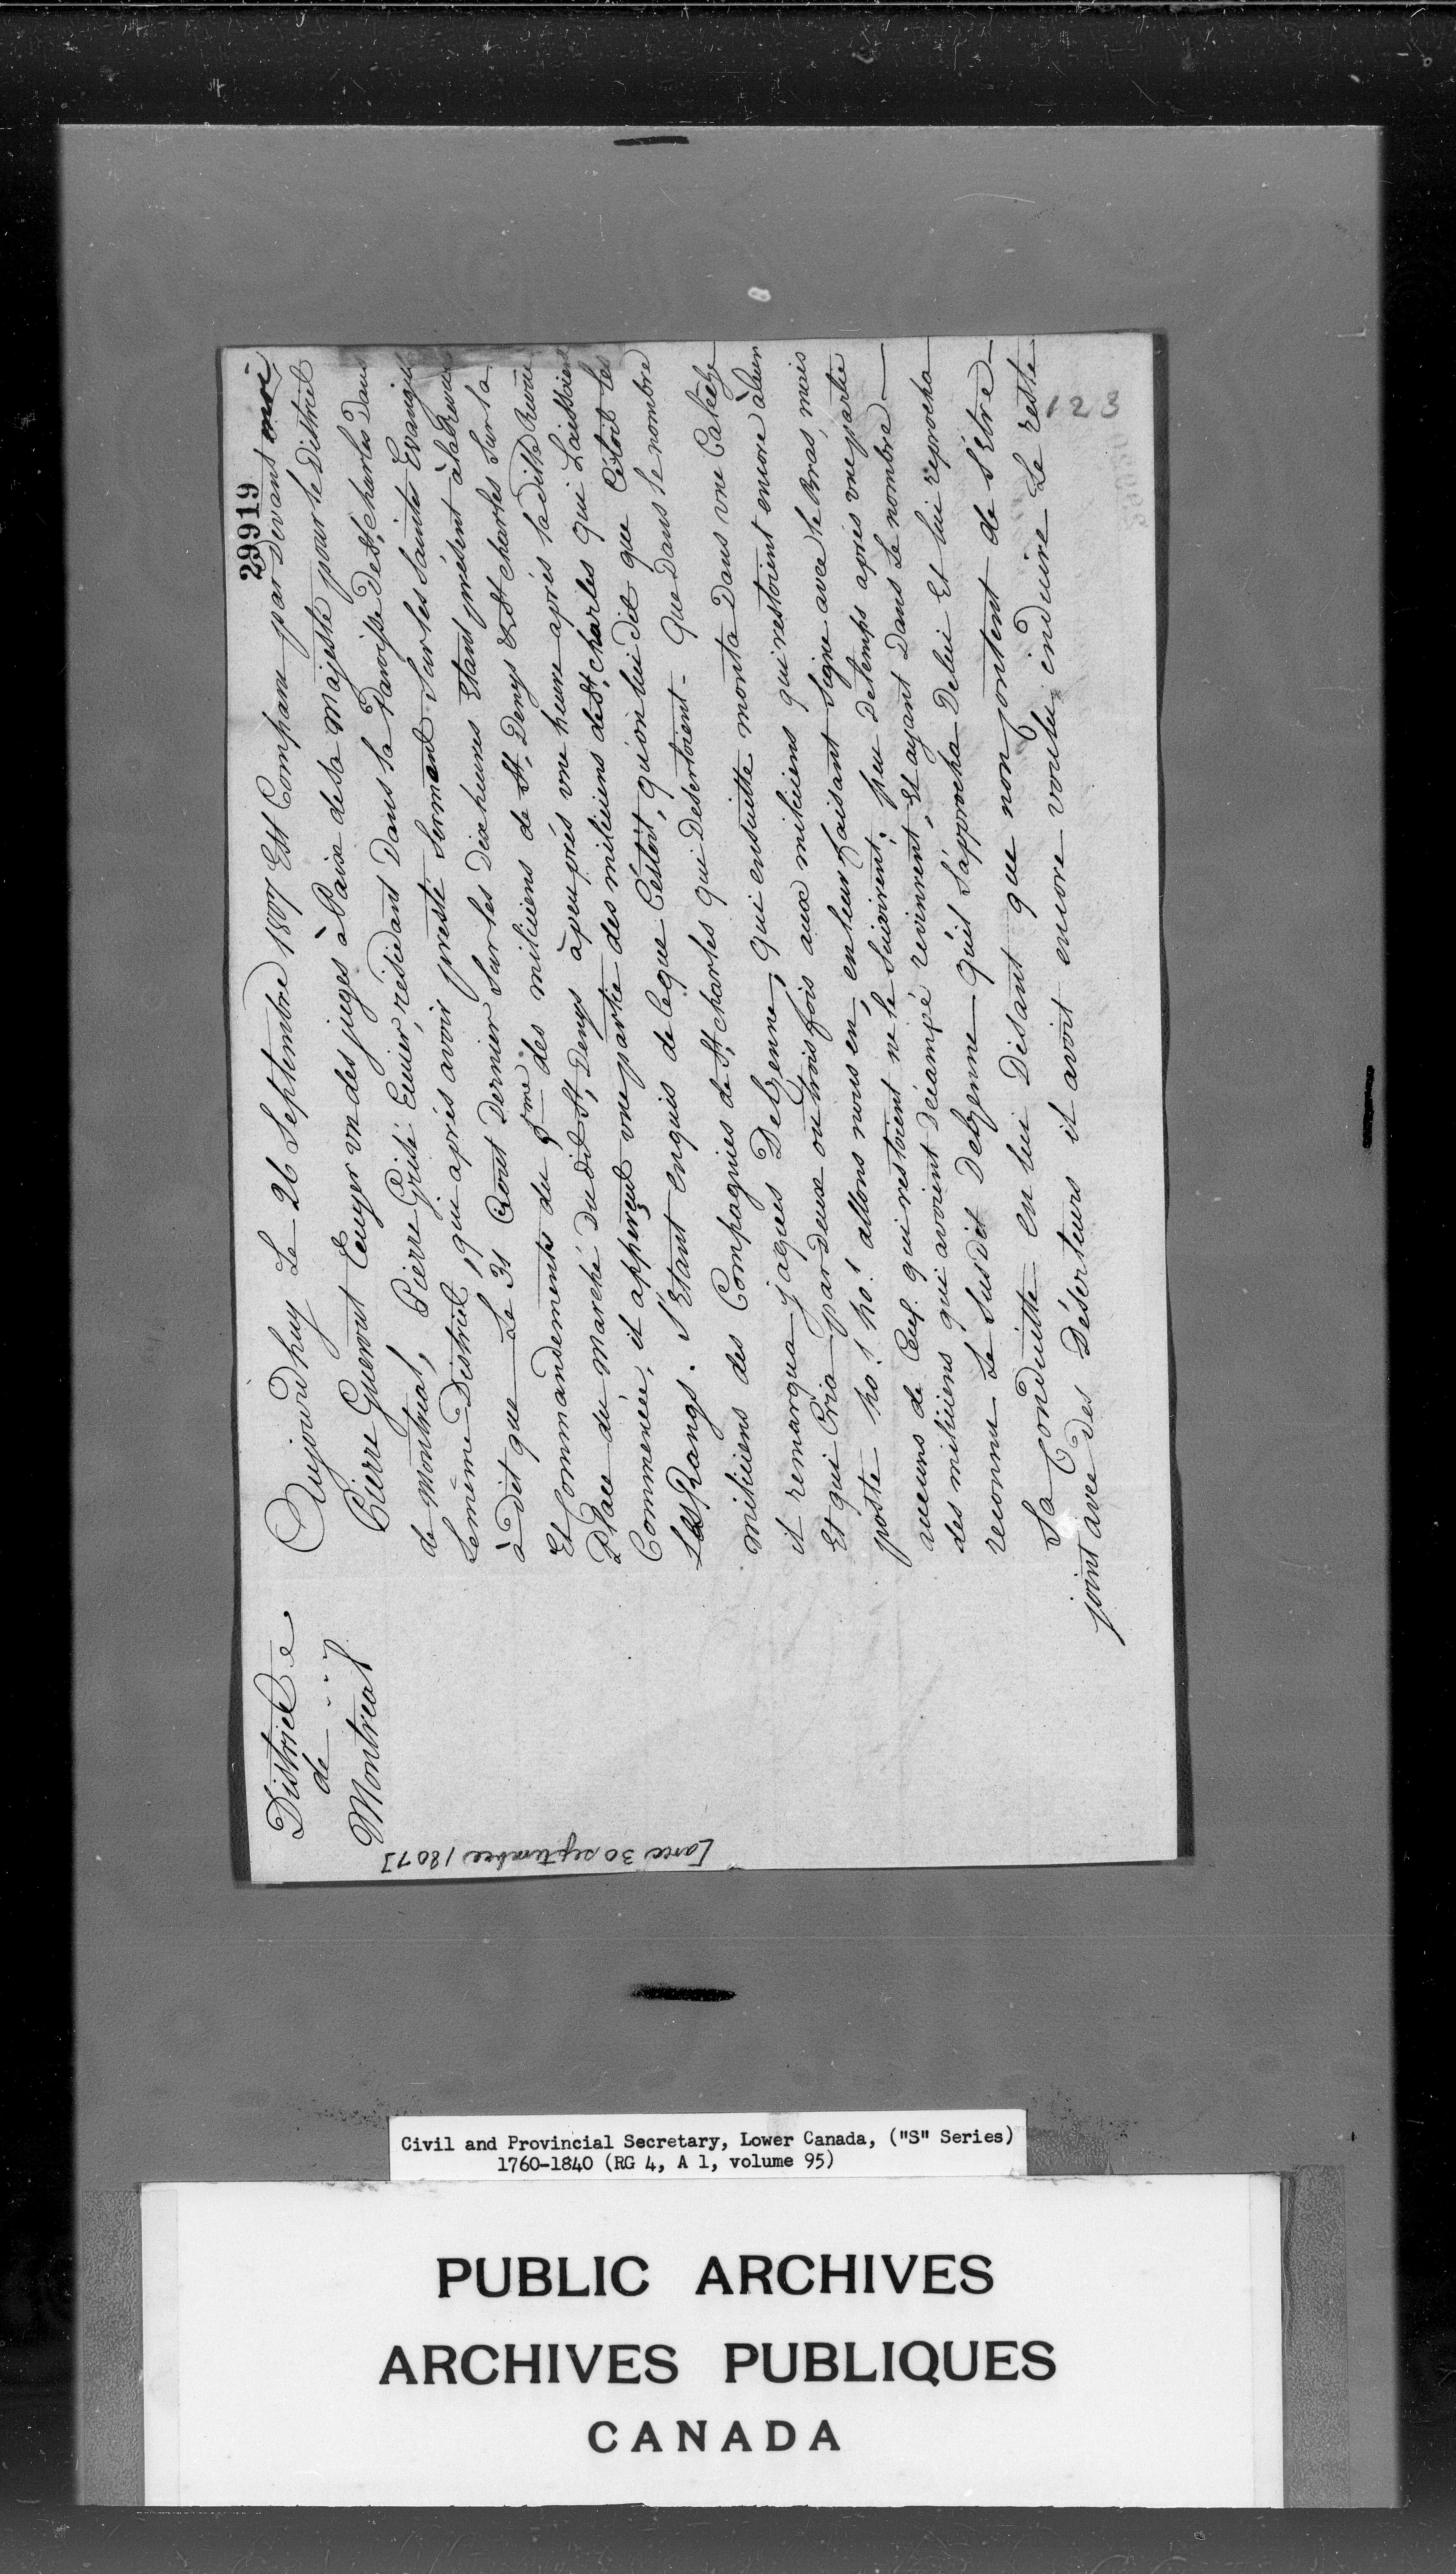 29919
District
de
Montreal
Aujourdhuy Le 26 Septembre 1807 Est Comparu par Devant moi
Pierre Guerout Ecuyer un des juges à Paix de sa Majesté pour le District
de Montréal, Pierre Grisé Ecuier, résidant Dans la Paroisse De St. Charles Dans
Le même District, qui après avoir presté Serment Sur les Sainte Evangile
à dit que Le 31 Aout Dernier Sur les Dix heures Etant présent à la Revue
Et Commandements du 5me des miliciens de St. Denys & St. Charles Sur la
Place du marché du dit St. Denys àpeuprés une heure après la ditte Revue
Commencée, il apperçut une partie des miliciens de St. Charles qui Laissoient
Les Rangs. S'Etant enquis de ceque C'estoit, qu'on lui dit que C'étoit les
miliciens des Compagnies de St. Charles qui Desertoient - Que Dans le nombre
il remarqua jaques Delzenne, qui ensuitte monta Dans une Calêche
Et qui Cria par deux ou trois fois aux miliciens qui restoient encore àleur
poste ho! ho! ho! allons nous en, en leur faisant Signe avec le Bras, mais
aucuns de Ceux qui restoient ne le Suivirent, peu Detemps après une partie
des miliciens qui avoient décampé revinrent, Et ayant Dans Le nombre
reconnu Le Susdit Delzenne qu'il S'approcha Delui Et lui reprocha
Sa Conduitte en lui Disant que non Content de S'Etre
joint avec Des Déserteurs il avoit encore voulu induire Le reste
123
[avec 30 septembre 1807]
Civil and Provincial Secretary, Lower Canada, ("S" Series)
1760-1840 (RG 4, A 1, volume 95)
PUBLIC ARCHIVES
ARCHIVES PUBLIQUES
CANADA